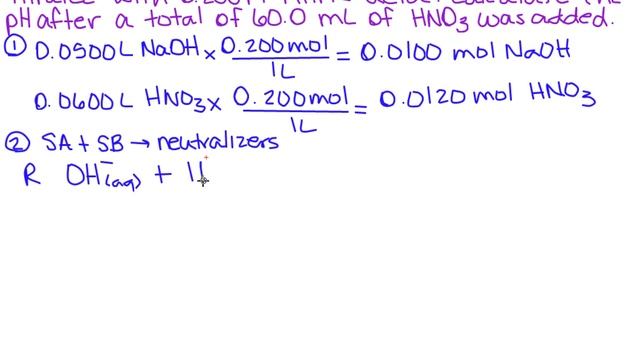 pH after a total of 60.0 mL of HNO₃ was added.
① 0.0500L NaOH x 0.200mol/1L = 0.0100 mol NaOH
0.0600L HNO₃ x 0.200mol/1L = 0.0120 mol HNO₃
② SA + SB → neutralizers
R OH⁻(aq) +